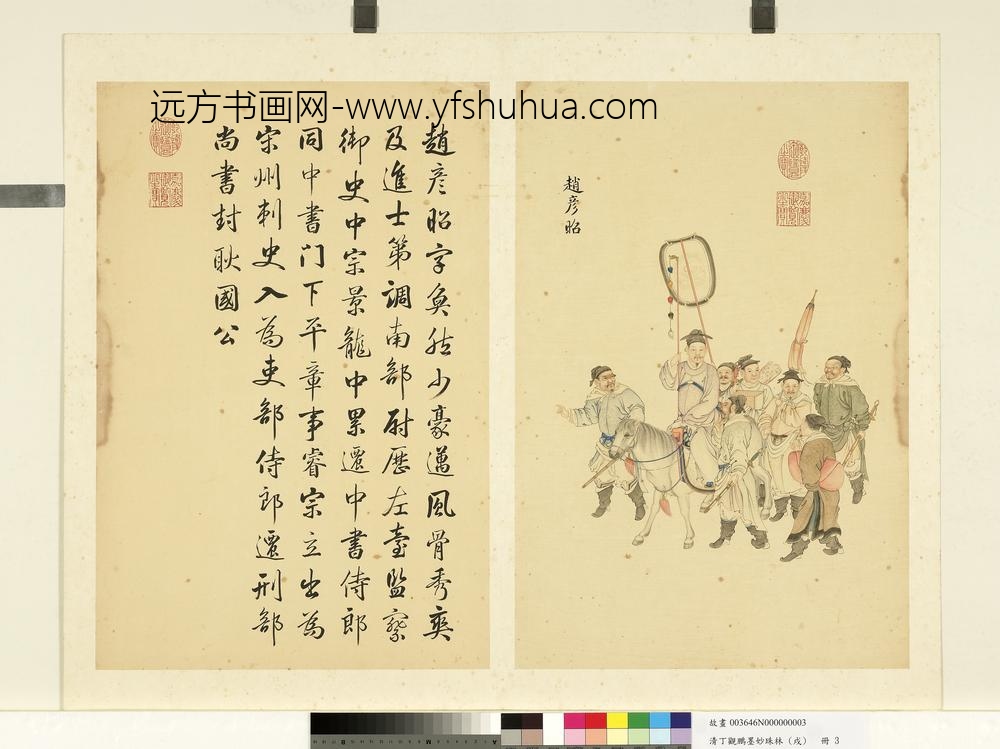 远方书画网-www.yfshuhua.com
趙彥昭
趙彥昭字奐然少豪邁風骨秀爽
及進士第調南部尉歷左臺監察
御史中宗景龍中累遷中書侍郎
同中書门下平章事睿宗立出為
宋州刺史入為吏部侍郎遷刑部
尚書封耿國公
故畫 003646N000000003
清丁觀鵬墨妙珠林（戌） 冊 3